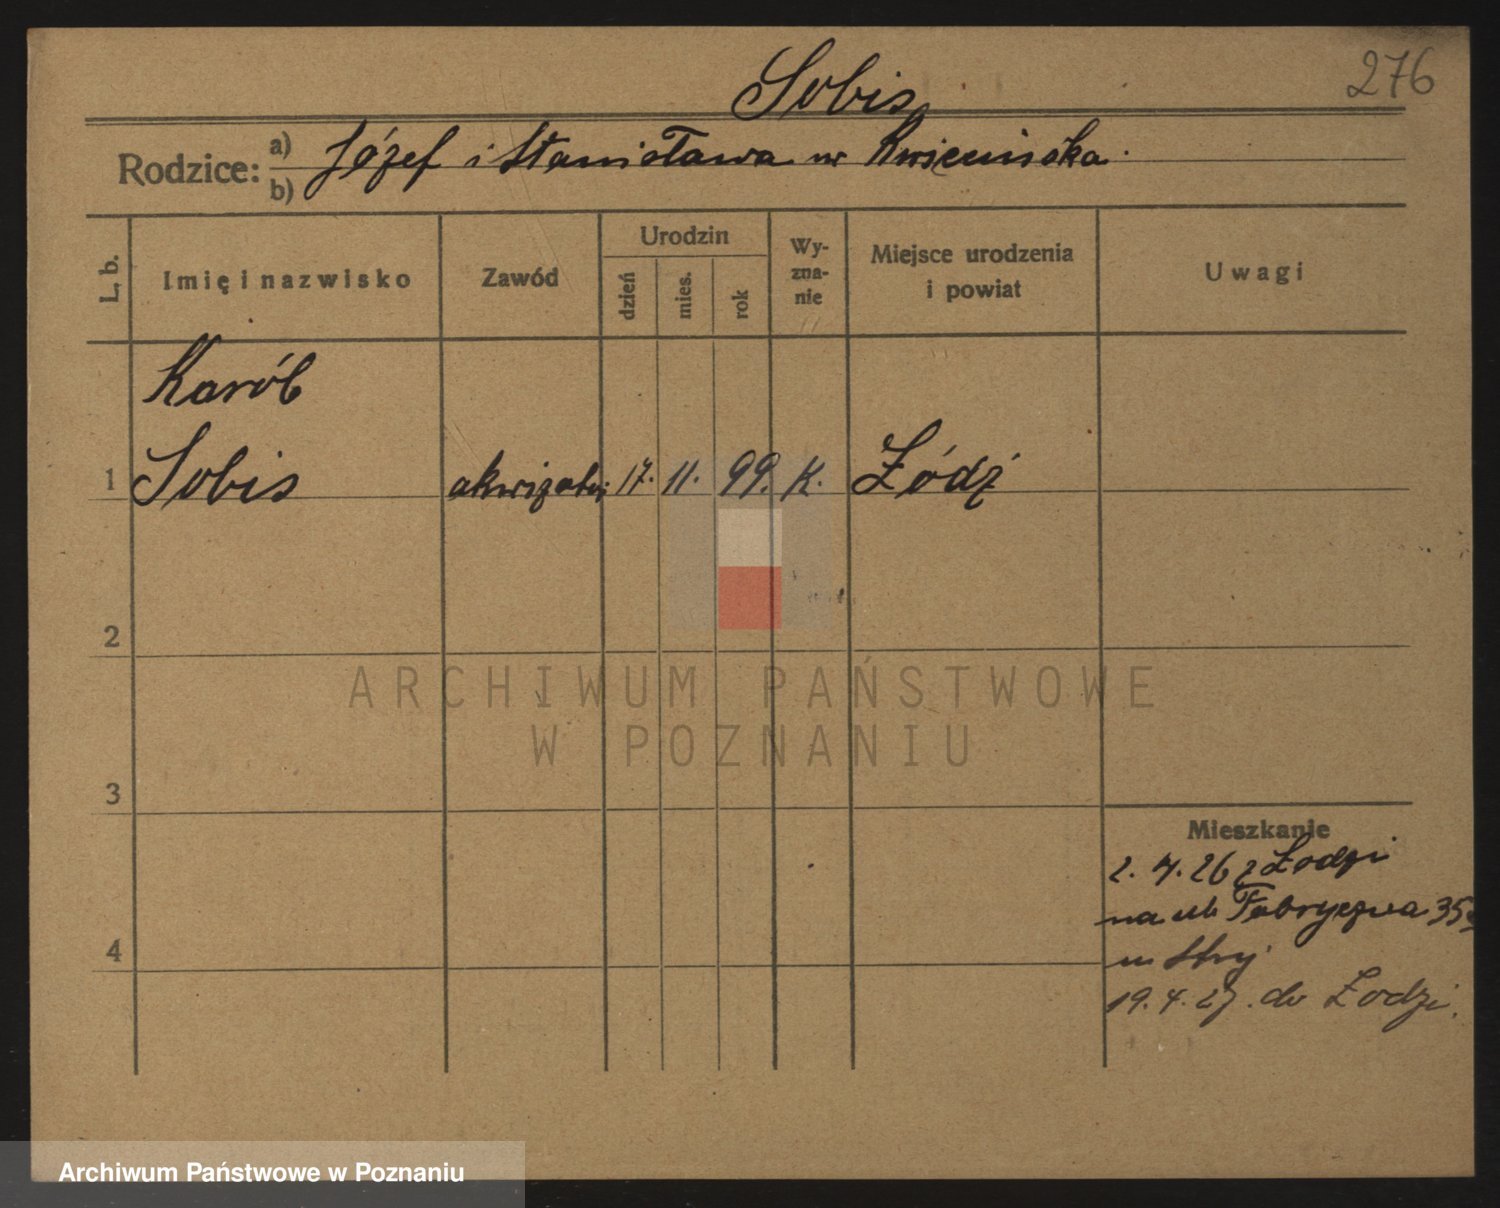 276
Sobis
Rodzice: a) b) Józef i Stanisława
L. b.
Imię i nazwisko
Zawód
Urodzin
dzień
mies.
rok
Wy-
zna-
nie
Miejsce urodzenia
i powiat
Uwagi
Karól
1 Sobis akwizator 17. 11. 99. K. Łódź
2
ARCHIWUM PAŃSTWOWE
W POZNANIU
3
Mieszkanie
2. 4. 26 z Łodzi
na ul. Fabryczna 35
4
19. 4. 27. do Łodzi.
Archiwum Państwowe w Poznaniu